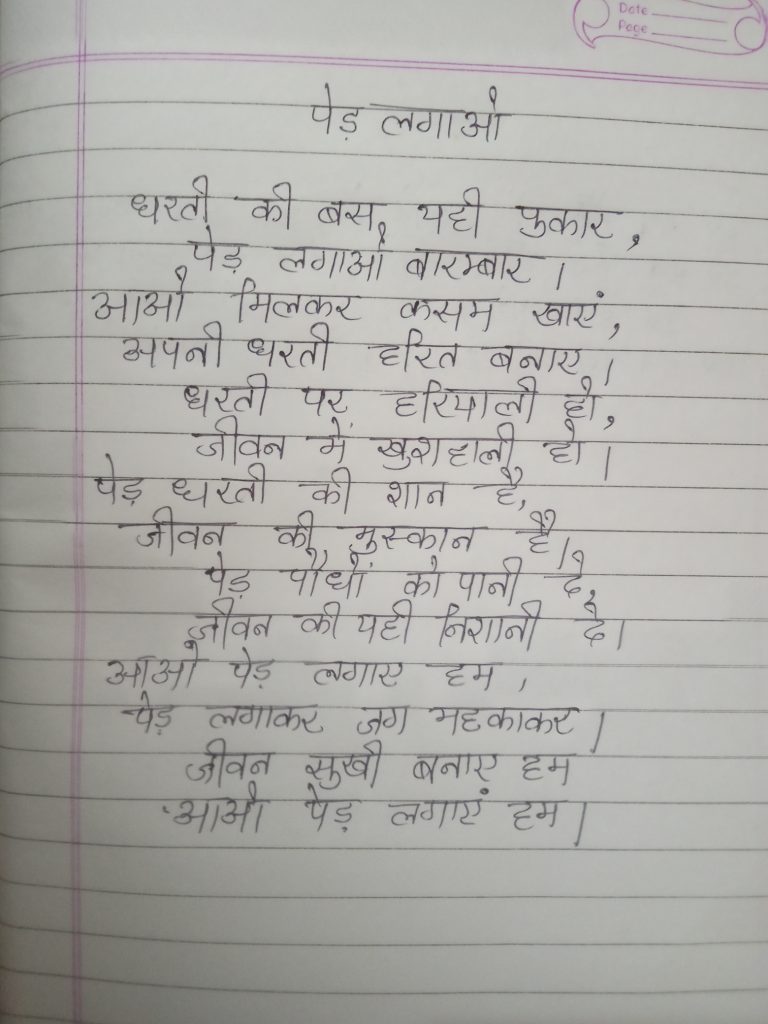 Date
Page
पेड़ लगाओ
धरती की बस, यही पुकार,
पेड़ लगाओ बारम्बार।
आओ मिलकर कसम खाएं,
अपनी धरती हरित बनाए।
धरती पर हरियाली हो,
जीवन में खुशहाली हो।
पेड़ धरती की शान है,
जीवन की मुस्कान है।
पेड़ पौधों को पानी दे,
जीवन की यही निशानी दे।
आओ पेड़ लगाए हम,
पेड़ लगाकर जग महकाकर।
जीवन सुखी बनाए हम
आओ पेड़ लगाएं हम।